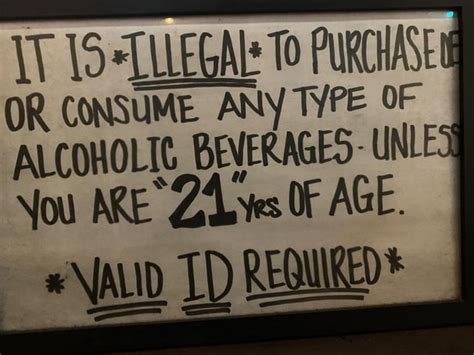 IT IS *ILLEGAL* TO PURCHASE
OR CONSUME ANY TYPE OF
ALCOHOLIC BEVERAGES - UNLESS
YOU ARE "21" YRS OF AGE.
*VALID ID REQUIRED*